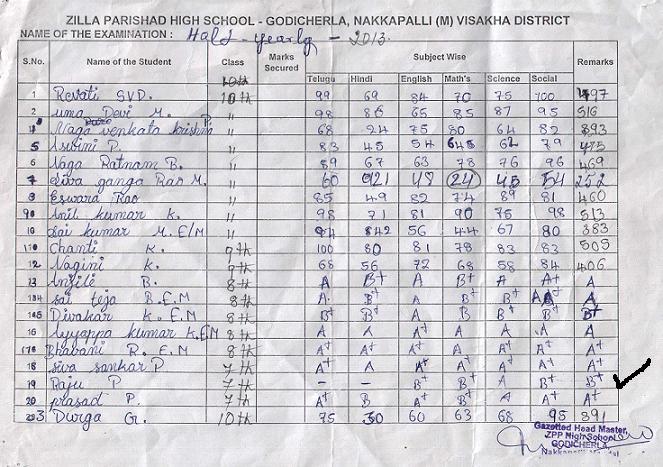 ZILLA PARISHAD HIGH SCHOOL - GODICHERLA, NAKKAPALLI (M) VISAKHA DISTRICT
NAME OF THE EXAMINATION : Half-yearly - 2013.
S.No. Name of the Student Class Marks Secured Subject Wise Remarks
Telugu Hindi English Math's Science Social
10th
1 Revati S.V.D. 10th 99 69 84 70 75 100 497
2 uma Devi M. " 98 86 65 85 87 95 516
Naga venkata krishna P. " 68 24 75 80 64 82 393
5 Asvini P. " 83 45 54 62 79
6 Naga Ratnam B. " 89 67 63 78 76 96 469
7 Siva ganga Rao M. " 60 48 24 45 54 252
Eswara Rao " 85 49 82 74 89 81 460
Anil kumar K. " 98 71 81 90 75 98 513
10 Sai kumar M. E/M " 94 56 44 67 80 383
Chanti K. 9th 100 80 81 78 83 83 505
12 Nagini K. 9th 68 56 72 68 58 84 406
13 B. 8th A B+ A B+ A A+ A
Sai teja B. E.M 8th A B+ A B+ B+ A A
Divakar K. E.M 8th B+ B+ A B+ B+ B+
Ayyappa kumar K. E.M 8th A A A+ A A A A
Bhavani R. E.M 8th A+ A+ A+ A A+ A+ A+
18 Siva sankar P 7th A+ A A+ A+ A+ A+ A+
19 Raju P 7th - - B+ B+ A B+ B+
20 prasad P. 7th A+ B A+ A+ A A+ A+
Durga G. 10th 75 30 60 63 68 95 391
Gazetted Head Master,
ZPP High School
GODICHERLA,
Nakkapalli Mandal